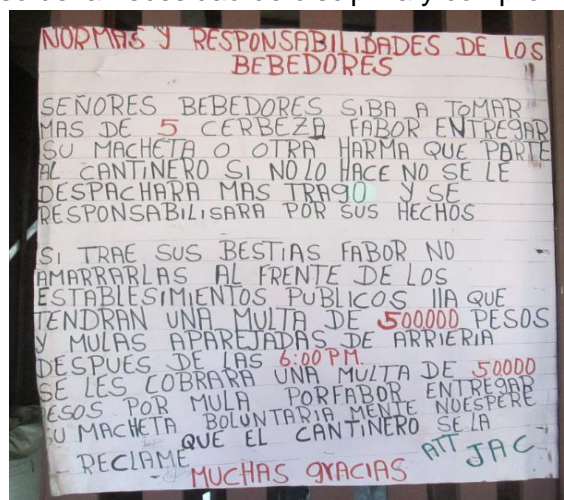 NORMAS Y RESPONSABILIDADES DE LOS
BEBEDORES
SEÑORES BEBEDORES SIBA A TOMAR
MAS DE 5 CERBEZA FABOR ENTREGAR
SU MACHETA O OTRA HARMA QUE PORTE
AL CANTINERO SI NO LO HACE NO SE LE
DESPACHARA MAS TRAGO Y SE
RESPONSABILISARA POR SUS HECHOS
SI TRAE SUS BESTIAS FABOR NO
AMARRARLAS AL FRENTE DE LOS
ESTABLESIMIENTOS PUBLICOS IIA QUE
TENDRAN UNA MULTA DE 500000 PESOS
Y MULAS APAREJADAS DE ARRIERIA
DESPUES DE LAS 6:00 PM.
SE LES COBRARA UNA MULTA DE 50000
PESOS POR MULA PORFABOR ENTREGAR
SU MACHETA BOLUNTARIA MENTE NUESPERE
QUE EL CANTINERO SE LA
RECLAME
ATT JAC
MUCHAS GRACIAS